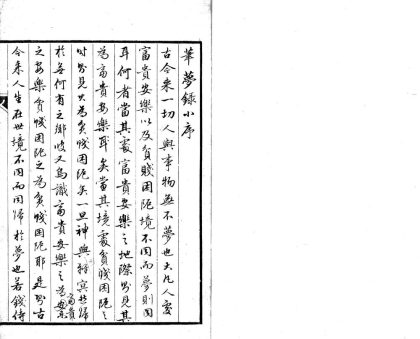 華夢錄小序
古今來一切人與事物無不夢也大凡人處
富貴安樂以及貧賤困阨境不同而夢則同
耳何者當其處富貴安樂之地際則見其
為富貴安樂耳矣當其境處貧賤困阨之
時則見其為貧賤困阨矣一旦神與物冥悲歸
於無何有之鄉境又烏識富貴安樂之為富貴
之安樂貧賤困阨之為貧賤困阨耶是則古
今來人生在世境不同而同歸於夢也若錢侍